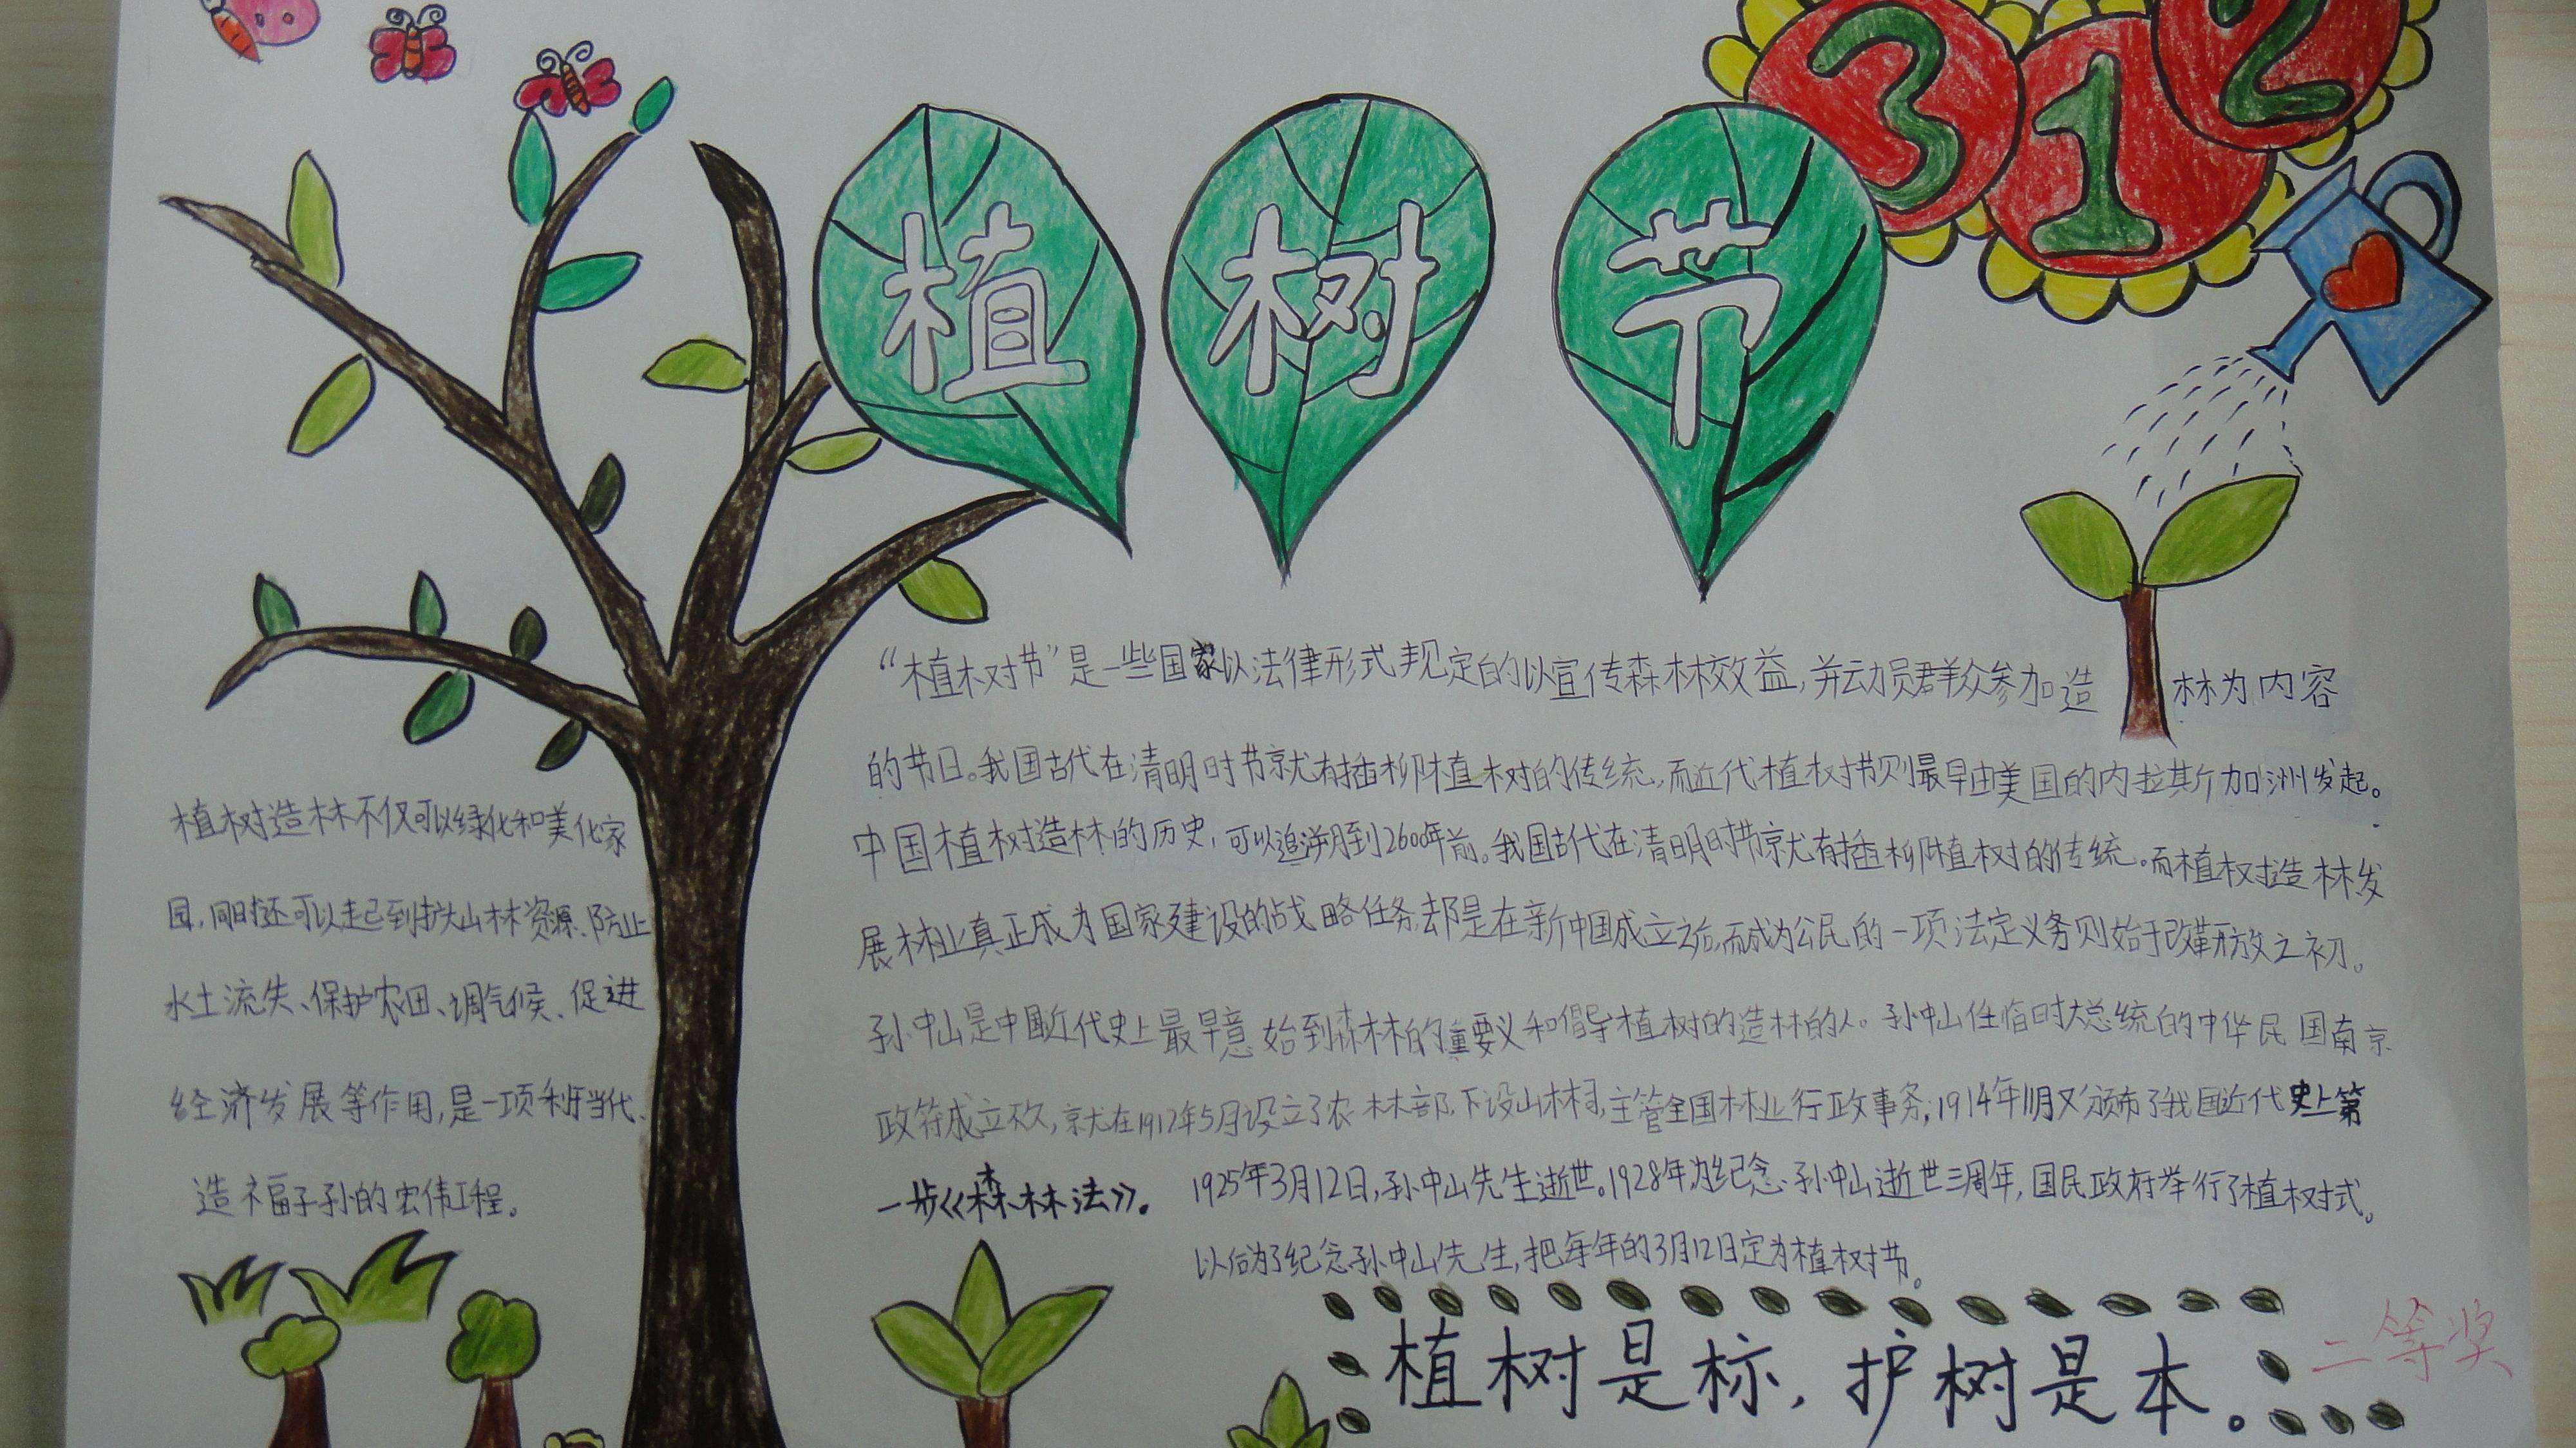 312
植树节
“植树节”是一些国家以法律形式规定的以宣传森林效益,并动员群众参加造林为内容
的节日。我国古代在清明时节就有插柳植树的传统,而近代植树节则最早由美国的内拉斯加洲发起。
中国植树造林的历史,可以追溯到2600年前。我国古代在清明时节就有插柳植树的传统。而植树造林发
展林业真正成为国家建设的战略任务却是在新中国成立之后,而成为公民的一项法定义务则始于改革开放之初。
孙中山是中国近代史上最早意始到森林的重要义和倡导植树的造林的人。孙中山任临时大总统的中华民国南京
政府成立不久,就在1912年5月设立了农林部,下设山林司,主管全国林业行政事务,1914年11月又颁布了我国近代史上第
一步《森林法》。1925年3月12日,孙中山先生逝世。1928年为纪念孙中山逝世三周年,国民政府举行了植树式。
以后为了纪念孙中山先生,把每年的3月12日定为植树节。
植树造林不仅可以绿化和美化家
园,同时还可以起到扩大山林资源、防止
水土流失、保护农田、调气候、促进
经济发展等作用,是一项利于当代、
造福子孙的宏伟工程。
植树是标,护树是本。
二等奖